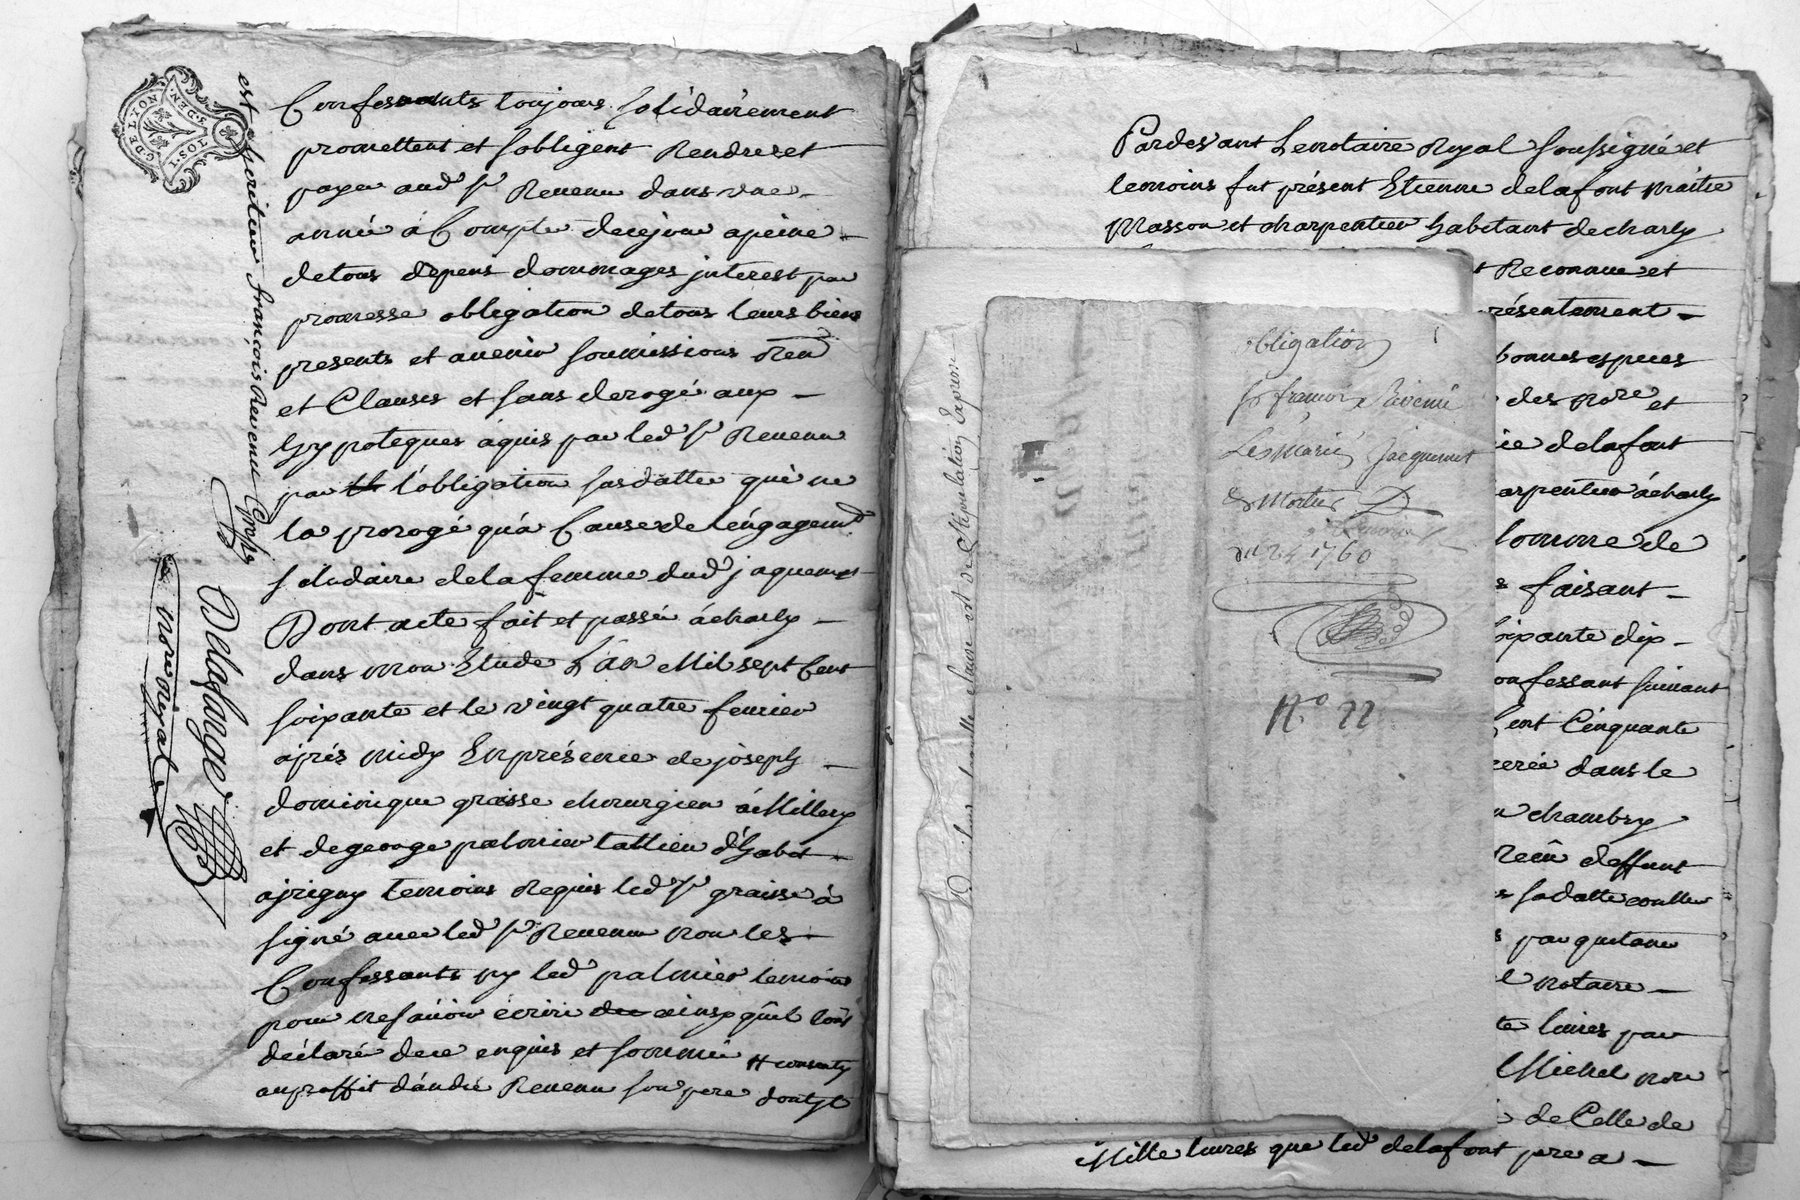 G. DE LYON
GEN.
3.D.
1.SOL
Confessants toujours solidairement
promettent et sobligent Rendre et
payer aud sr Revenu dans une
année à Compter decejour apeine
detous depens dommages jnterest par
promesse obligation detous leurs biens
presents et avenir soumissions Ren
et Clauses et sans derogé aux
hypoteques aquis par led sr Revenu
par l'obligation susdatte qui ne
la prorogé qu'a Cause de l'éngagemt
solidaire delafemme dud jaquemet
Dont acte fait et passé àcharly
dans mon Etude L'an Mil sept Cent
soixante et le vingt quatre fevrier
aprés midy Enprésence de joseph
dominique graisse chirurgien àMillery
et degeorge palmier tallieur d'habit
ajrigny temoins Requis led sr graisse à
signé avec led sr Revenu non les
Confessants ny led palmier temoin
pour nesavoir écrire ainsy qu'il lont
déclaré dece enquis et sommé # consenty
auproffit d'andré Revenu son pere dontyl
est heritier françois Revenu
Delafarge
nore Royal
Pardevant Lenotaire Royal soussigné et
temoins fut présent Etienne delafont maitre
Masson et charpentier habitant decharly
t Reconnu et
résentement
bonnes especes
des nore et
ie delafont
arpentier àcharly
somme de
s faisant
soixante dix
onfessant suivant
Cent Cinquante
cerée dans le
chambry
recû deffunt
s sadatte
s par quitance
l notaire
te livres par
Michel nore
de Celle de
Mille livres que led delafont pere a
obligation
sr françois Revenu
Lesmariés Jaquemet
& Mortier
du 24 1760
N.o 22
clause est de Stipulation Expresse